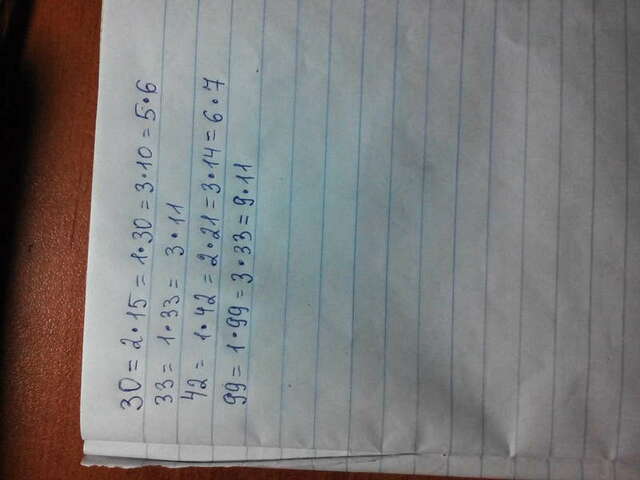 30 = 2•15 = 1•30 = 3•10 = 5•6
33 = 1•33 = 3•11
42 = 1•42 = 2•21 = 3•14 = 6•7
99 = 1•99 = 3•33 = 9•11